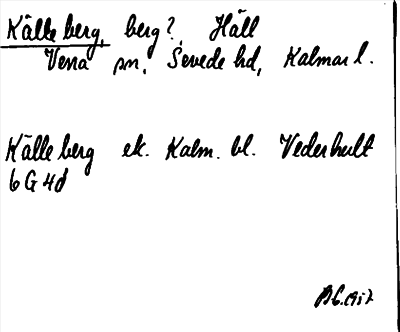 Källeberg, berg?, Häll
Vena sn, Sevede hd, Kalmar l.
Källeberg ek. Kalm. bl. Vederhult
6G4d